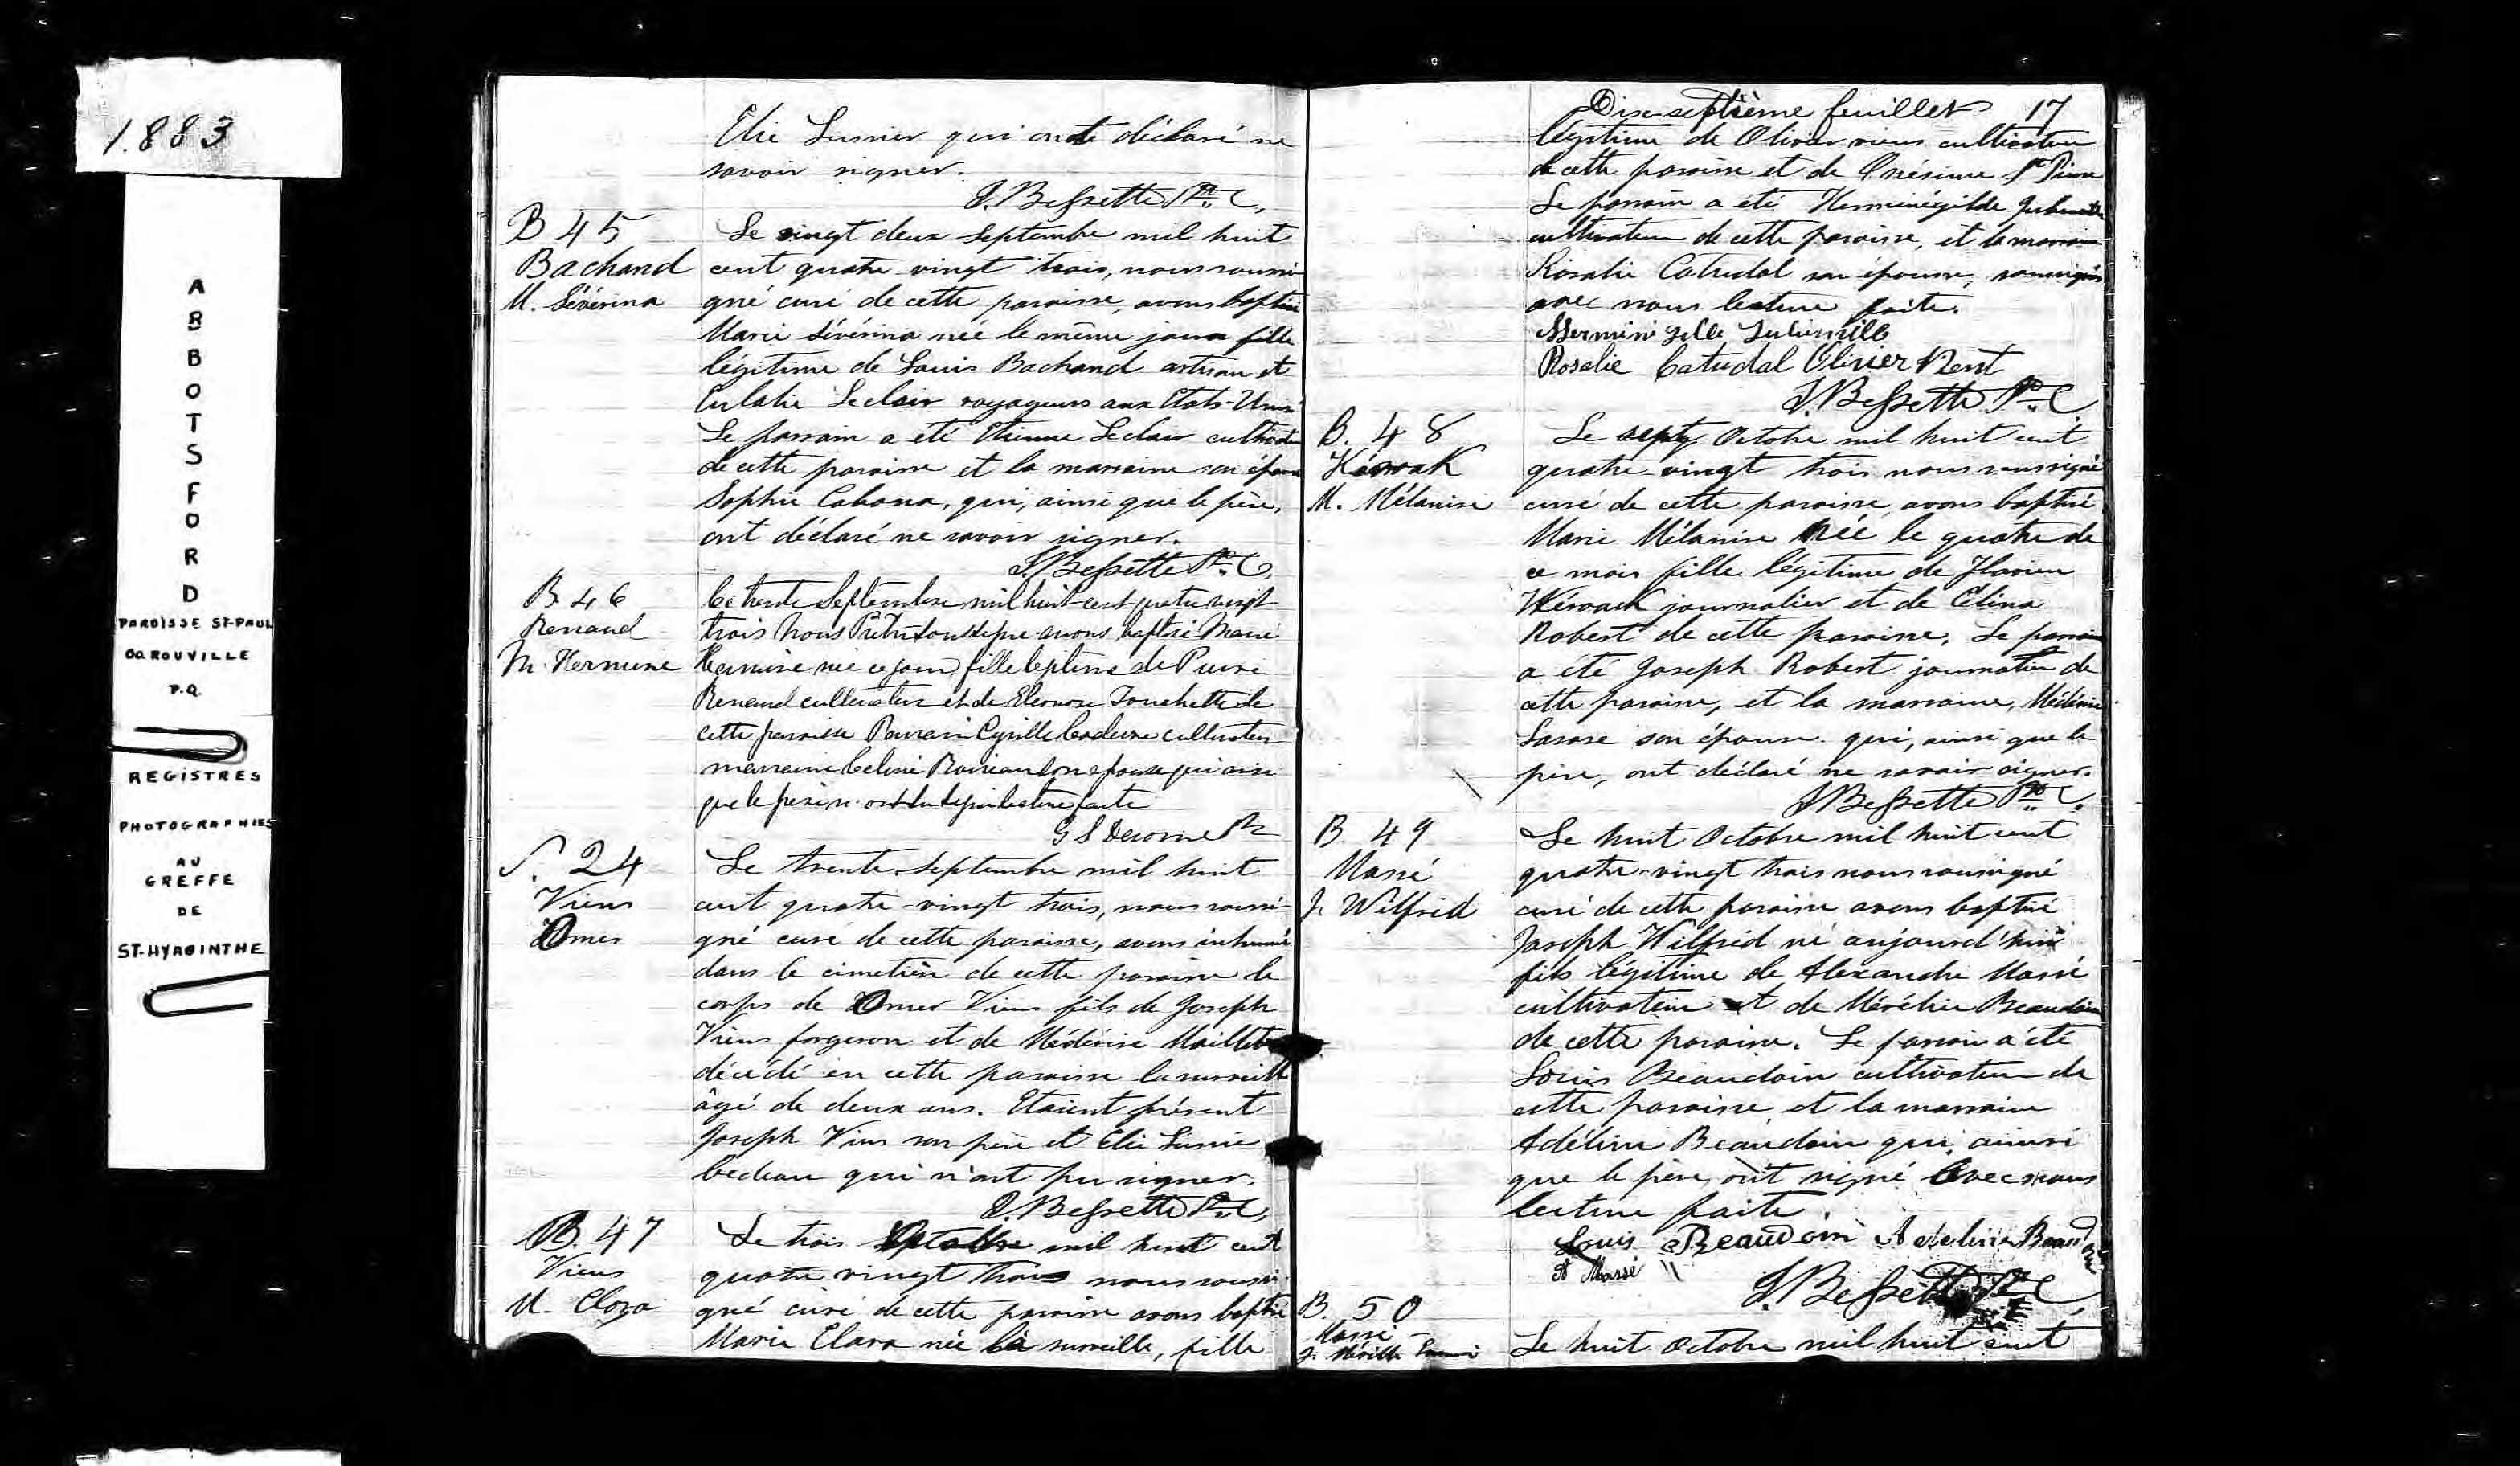 1883
ABBOTSFORD
PAROISSE ST-PAUL
Co ROUVILLE
P.Q.
REGISTRES
PHOTOGRAPHIES
AU
GREFFE
DE
ST-HYACINTHE
Elie Lusier qui ont déclaré ne
savoir signer.
J. Bessette Ptre C.
B 45
Bachand
M. Sévérina
Le vingt deux Septembre mil huit
cent quatre-vingt trois, nous soussi-
gné curé de cette paroisse, avons baptisé
Marie Sévérina née le même jour fille
légitime de Louis Bachand artisan et
Eulalie Leclair voyageurs aux Etats-Unis
Le parrain a été Etienne Leclair cultivateur
de cette paroisse et la marraine son épouse
Sophie Cabana, qui, ainsi que le père,
ont déclaré ne savoir signer.
J. Bessette Ptre C.
B. 46
Renaud
M. Hermine
Le trente Septembre mil huit-cent-quatre vingt
trois Nous Prêtre soussigné avons baptisé Marie
Hermine née ce jour fille légitime de Pierre
Renaud cultivateur et de Eleonore Touchette de
cette paroisse Parrain Cyrille cultivateur
marraine Celina son épouse qui ainsi
que le père n'ont su signer lecture faite
G S Derome Ptre
S. 24
Viens
Omer
Le trente Septembre mil huit
cent quatre-vingt trois, nous soussi-
gné curé de cette paroisse, avons inhumé
dans le cimetière de cette paroisse le
corps de Omer Viens fils de Joseph
Viens forgeron et de Médérise Maillet
décédé en cette paroisse la surveille
âgé de deux ans. Etaient présent
Joseph Viens son père et Elie Lusier
bedeau qui n'ont pu signer.
J. Bessette Ptre C.
B. 47
Viens
M. Clara
Le trois Octobre mil huit cent
quatre vingt trois nous soussi-
gné curé de cette paroisse avons baptisé
Marie Clara née la surveille, fille
Dix-septième feuillet 17
légitime de Olivier viens cultivateur
de cette paroisse et de Onésime St Pierre
Le parrain a été Herménégilde
cultivateur de cette paroisse, et la marraine
Rosalie Catudal son épouse, soussignés
avec nous lecture faite.
Rosalie Catudal Olivier
J. Bessette Ptre C.
B. 48
Kéroak
M. Mélanise
Le sept Octobre mil huit cent
quatre-vingt trois nous soussigné
curé de cette paroisse, avons baptisé
Marie Mélanise née le quatre de
ce mois fille légitime de Flavien
Kéroack journalier et de Elina
Robert de cette paroisse. Le parrain
a été Joseph Robert journalier de
cette paroisse, et la marraine, Médérise
son épouse qui, ainsi que le
père, ont déclaré ne savoir signer.
J. Bessette Ptre C.
B 49
Massé
J. Wilfrid
Le huit Octobre mil huit cent
quatre-vingt trois nous soussigné
curé de cette paroisse avons baptisé
Joseph Wilfrid né aujourd'hui
fils légitime de Alexandre Massé
cultivateur et de Mérélie Beaudoin
de cette paroisse. Le parrain a été
Louis Beaudoin cultivateur de
cette paroisse et la marraine
Adéline Beaudoin qui, ainsi
que le père, ont signé avec nous
lecture faite.
Louis Beaudoin Adelina Beaudoin
A Massé
J. Bessette Ptre C.
B. 50
Massé
Le huit Octobre mil huit cent